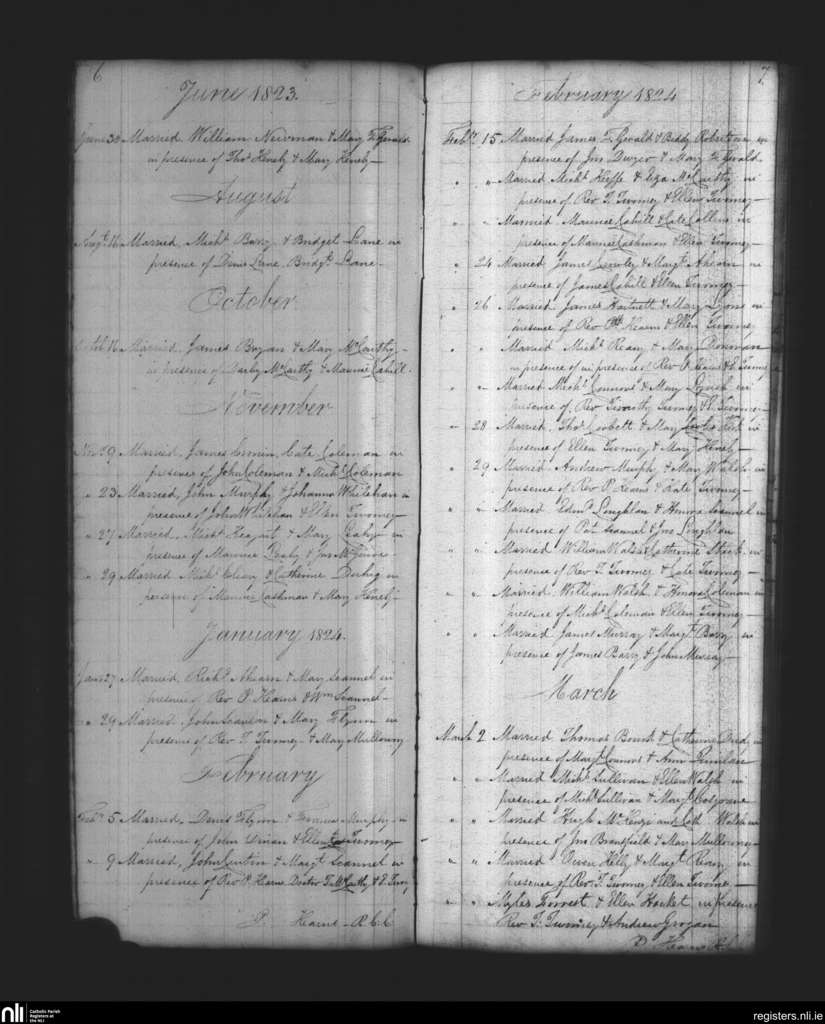 6
June 1823.
June 30 Married William Newman & Mary Fitzgerald
in presence of Thos Henely & Mary Henely
August
Augt. 16 Married, Michl Barry & Bridget Lane in
presence of Denis Lane, Bridgt. Lane
October
16 Married, James Bryan & Mary McCarthy
in presence of Darby McCarthy & Maurice Cahill
November
Nov 29 Married, James Cate Coleman in
presence of John Coleman & Michl Coleman
" 23 Married, John Murphy & Johanna Whilehan in
presence of John Whilehan & Ellen Twomey
" 27 Married, Michl & Mary Leahy in
presence of Maurice Leahy & Jno
" 29 Married Michl & Catherine in
presence of Maurice Cashman & Mary Henely
January 1824.
Jany 27 Married, Richd. Ahearn & Mary Scannel in
presence of Rev P. Hearne & Wm Scannel
" 29 Married, John Scanlan & Mary Flynn in
presence of Rev T. Twomey & Mary Mullowny
February
Feby 5 Married, Denis Flynn & Murphy in
presence of John & Ellen Twomey
" 9 Married, John & Margt Scannel in
presence of Revd P. Hearne Doctor McCarthy & E. Twomy
P. Hearne R.C.C
7
February 1824
Feby. 15 Married James FGerald & Biddy in
presence of Jno & Mary FGerald
" " Married Michl Keeffe & Eliza McCarthy in
presence of Rev T. Twomey & Ellen Twomey
" " Married Maurice Cahill & Cate Collins in
presence of Maurice Cashman & Ellen Twomey
" 24 Married James Crowley & Margt. Ahearn in
presence of James Cahill & Ellen Twomey
" 26 Married James Hartnett & Mary Lyons in
presence of Rev P. Hearne & Ellen Twomey
" " Married Michl Reay & Mary in
in presence of in presence of Rev P. Hearne & E. Twomey
" " Married Michl Connors & Mary Lynch in
presence of Rev Timothy Twomey & E. Twomey
" 28 Married, Thos Corbett & Mary in
presence of Ellen Twomey & Mary Henely
" 29 Married Andrew Murphy & Mary Walsh in
presence of Rev P. Hearne & Kate Twomey
" " Married Edmd Loughlan & Honora Scannel in
presence of Pat Scannel & Jno Loughlan
" " Married William Walsh & Catherine Stack in
presence of Rev T. Twomey & Cate Twomey
" " Married William Walsh & Honora Coleman in
presence of Michl Coleman & Ellen Twomey
" " Married James Murray & Margt Barry in
presence of James Barry & John Murray
March
March 2 Married Thomas & Catherine in
presence of Margt Connors & Ann Quinlan
" " Married Michl Sullivan & Ellen Walsh in
presence of Michl Sullivan & Margt Cosgrove
" " Married Hugh McKenzi and Cath Walsh in
presence of Jno Brangfield & Mary Mullowny
" " Married Owen Kelly & Margt. Reay in
presence of Rev. T. Twomey & Ellen Twomey
" " Myles Forrest & Ellen Hacket in presence
Rev T. Twomey & Andrew Grogan
P. Hearne R.C.C
nli
Catholic Parish
Registers at
the NLI
registers.nli.ie